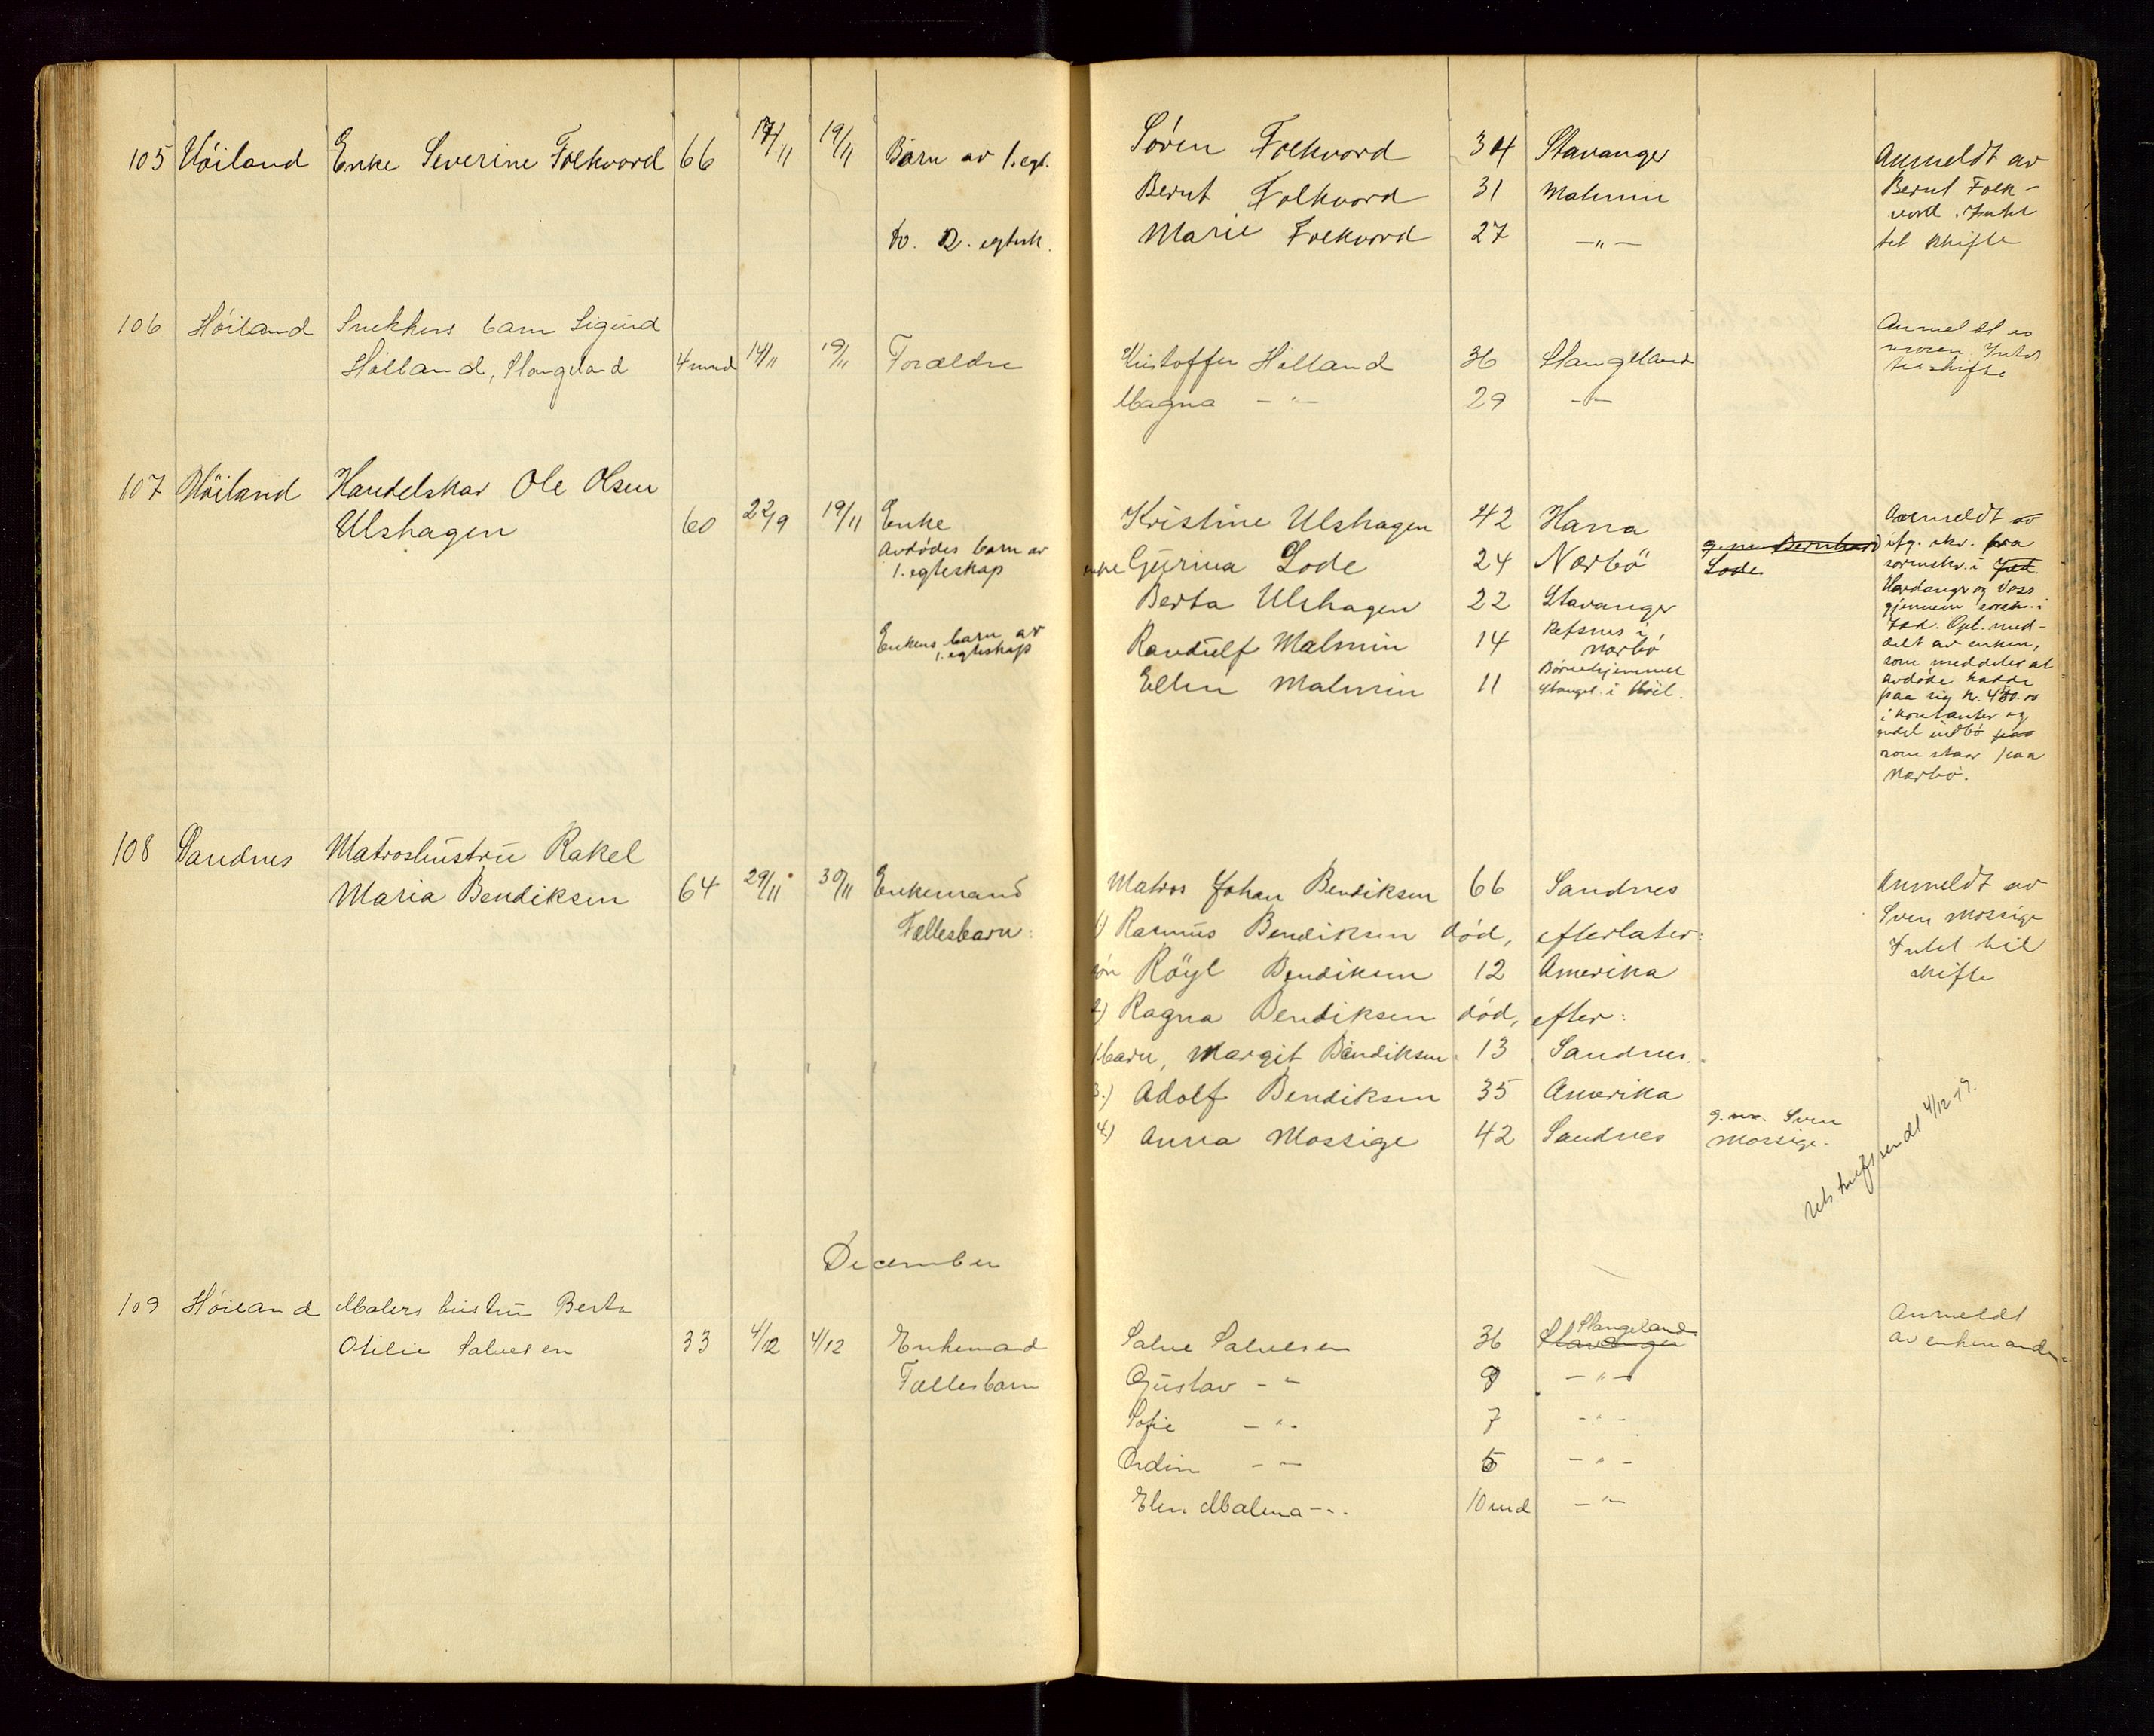 105 Höiland Enke Severine Folkvord 66 17/11 19/11 Barn av 1. egt. Søren Folkvord 34 Stavanger Anmeldt av
Bernt Folkvord 31 Malmin Bernt Folk-
vord. Intet
do. 2. egtesk. Marie Folkvord 27 —„— til skifte
106 Höiland Snekkers barn Sigurd Anmeldt av
Hölland, Stangeland 4 mnd 14/11 19/11 Forældre Kristoffer Hölland 36 Stangeland moren Intet
til skifte
Magna —„— 29 —„—
107 Höiland Handelskar Ole Olsen
Ulshagen 60 22/9 19/11 Enke Kristine Ulshagen 42 Hana Anmeldt av
Avdødes barn av
1. egteskap enke Gurina Lode 24 Nærbö g. m. Bernhard
Lode
ifg. skr. fra
sorenskr. i Jæd.
Berta Ulshagen 22 Stavanger Hardanger og Voss
gjennem sorsk. i
Enkens barn av
1. egteskap Randulf Malmin 14 Refsnes i
Nærbö
Jæd. Opl. med-
delt av enken,
som meddeler at
Ellen Malmin 11 Børnehjemmet
Stangel. i Höil.
avdøde hadde
paa sig kr. 450.00
i kontanter og
endel indbo paa
som staar paa
Nærbö.
108 Sandnes Matroshustru Rakel
Maria Bendiksen 64 29/11 30/11 Enkemand Matros Johan Bendiksen 66 Sandnes Anmeldt av
Fællesbarn: 1) Rasmus Bendiksen død, efterlater: Sven Mossige
sön Röyl Bendiksen 12 Amerika Intet til
skifte
2) Ragna Bendiksen død, efter:
1 barn, Margit Bendiksen 13 Sandnes.
3.) Adolf Bendiksen 35 Amerika
4.) Anna Mossige 42 Sandnes g. m. Sven
Mossige.
Utskrift sendt 4/12-19.
December
109 Höiland Malers hustru Berta Anmeldt
Otilie Salvesen 33 4/12 4/12 Enkemand Salve Salvesen 36 Stavanger Stangeland av enkemanden
Fællesbarn Gustav —„— 9 —„—
Sofie —„— 7 —„—
Ordin —„— 5 —„—
Elen Malena —„— 10 mnd —„—